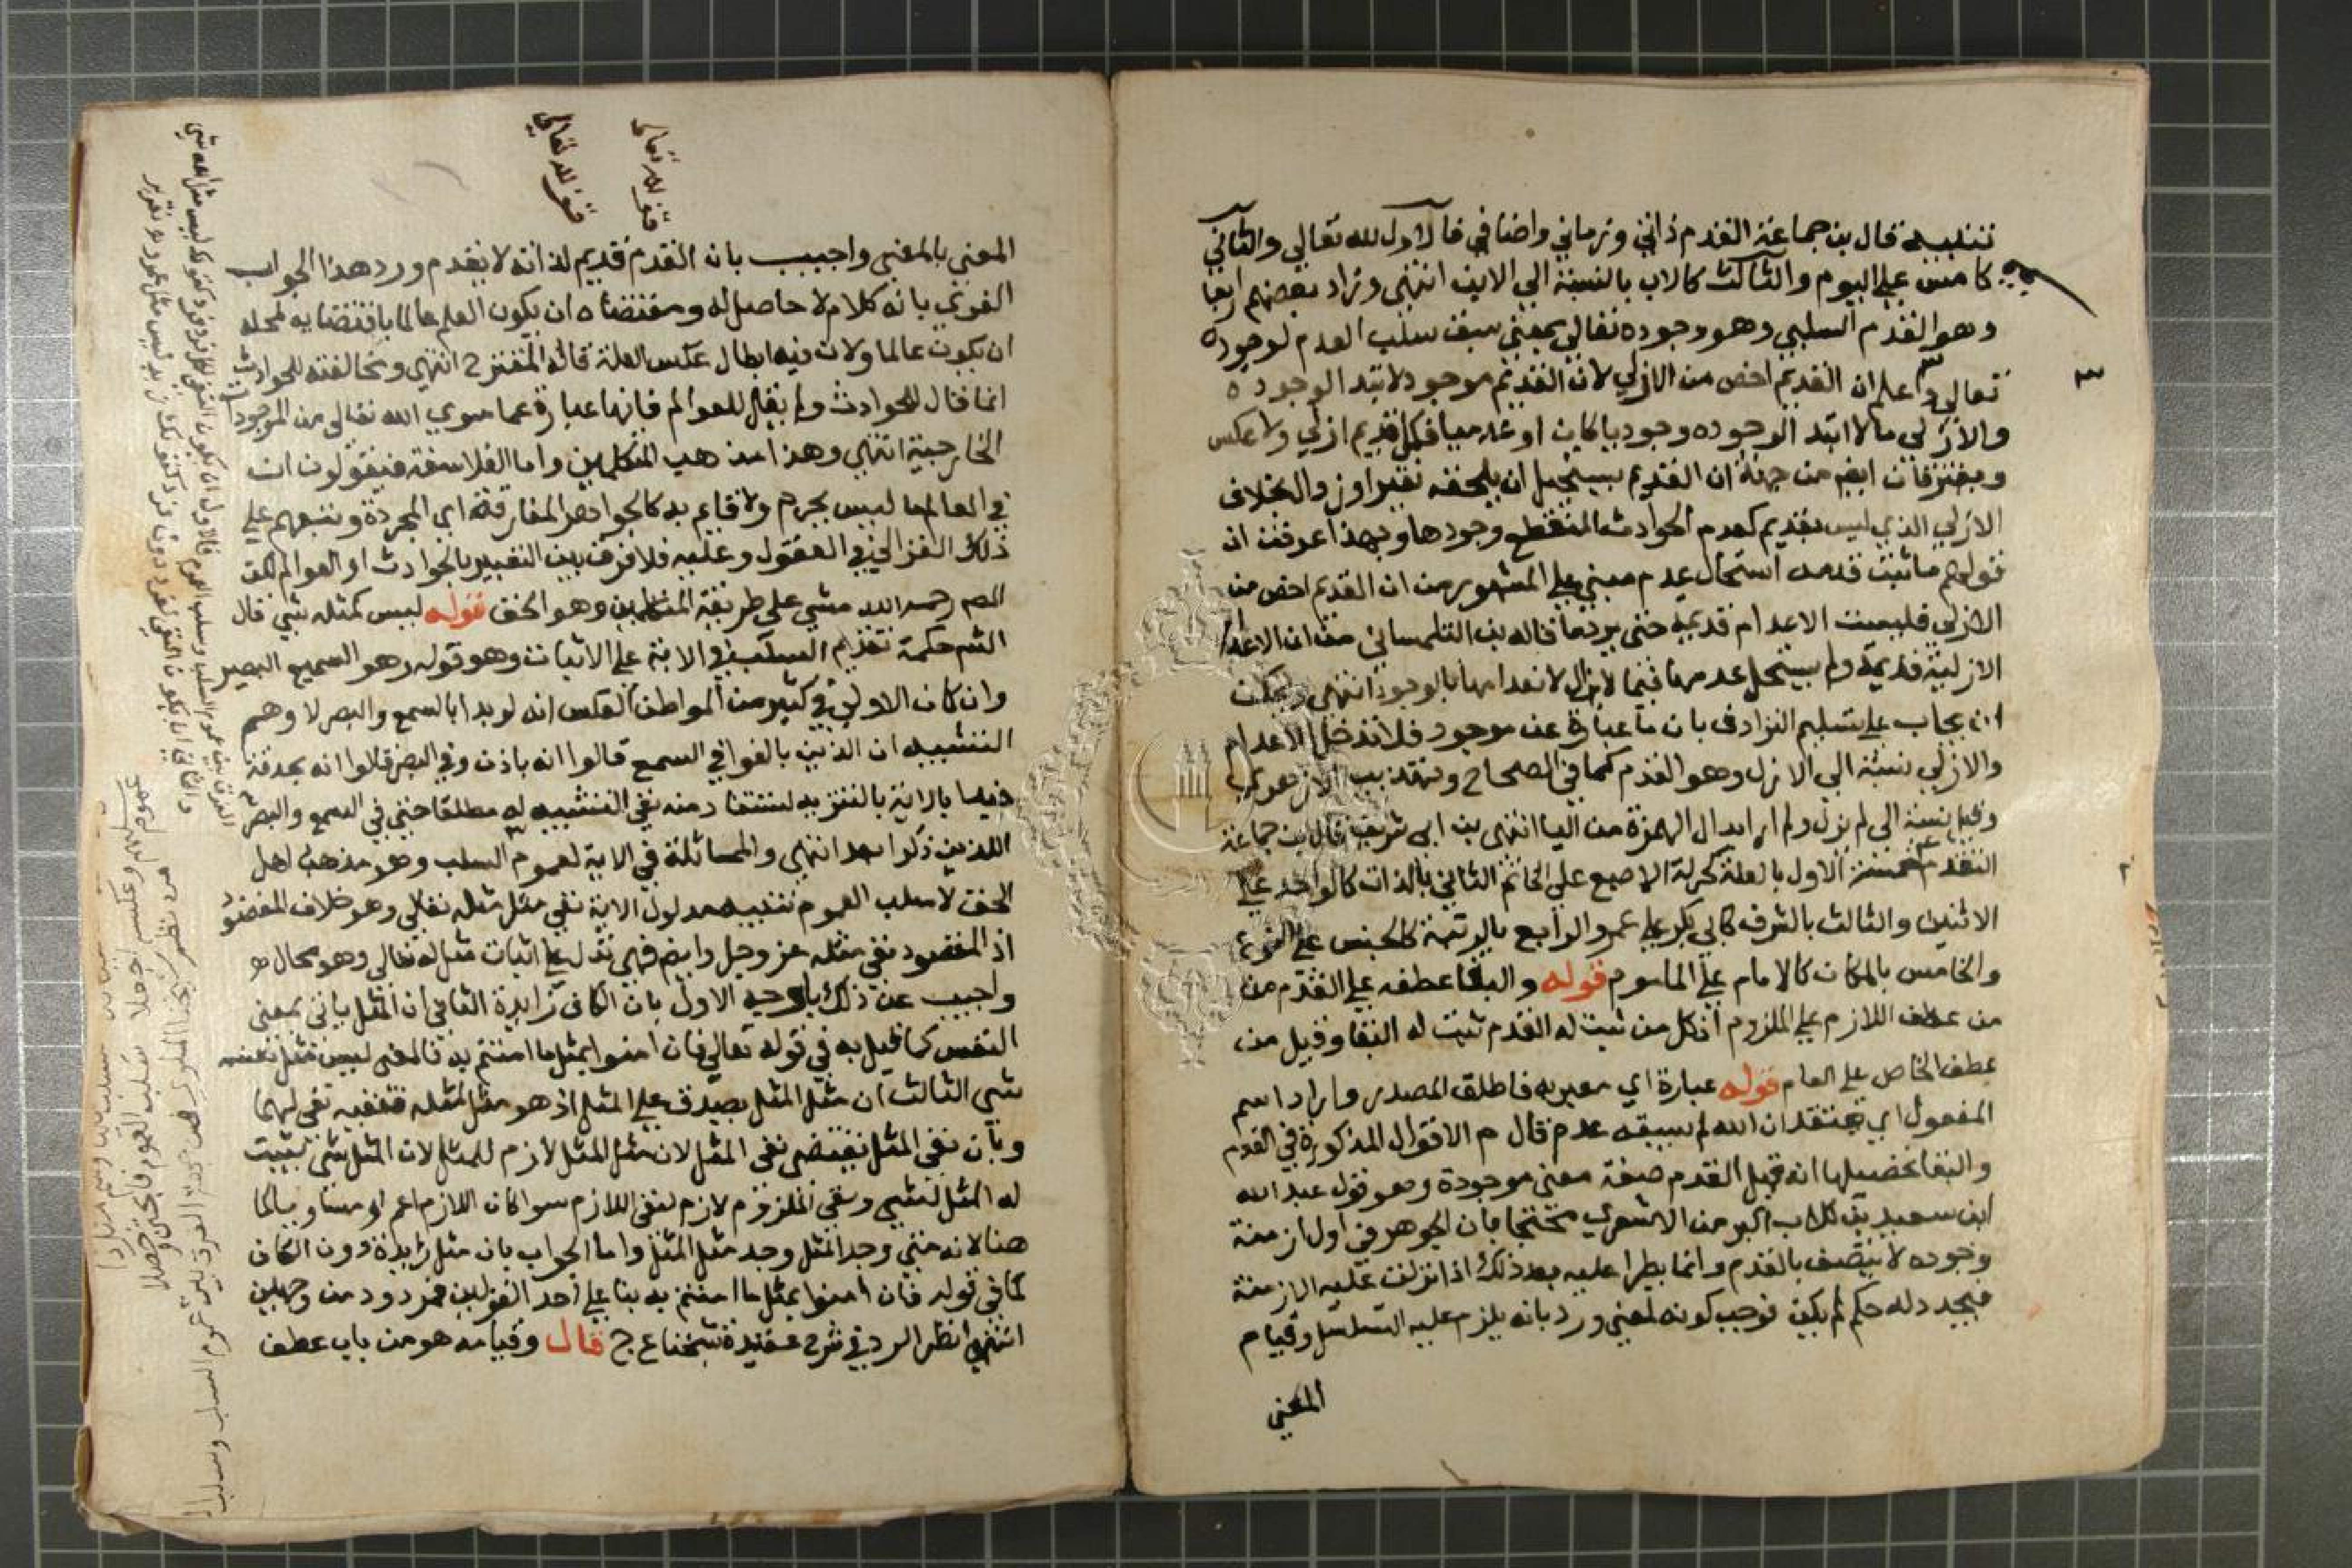 تنبيه قال بن جماعة القدم ذاتي وزماني واضافي فالاول لله تعالي والثاني
كامس علي اليوم والثالث كالاب بالنسبة الي الابن انتهي وزاد بعضهم رابعا
وهو القدم السلبي وهو وجوده تعالي بمعني سبق سلب العدم لوجوده
تعالي واعلم ان القديم اخص من الازلي لان القديم موجود لا ابتد الوجوده
والازلي ما لا ابتد الوجوده وجوديا كان او عدميا فكل قديم ازلي ولا عكس
ويفترقان ايض من جهة ان القديم يستحيل ان يلحقه تغير او زوال بخلاف
الازلي الذي ليس بقديم كعدم الحوادث المنقطع وجودها وبهذا عرفت ان
قولهم ما ثبت قدمه استحال عدم مبني علي المشهور من ان القديم اخص من
الازلي فليست الاعدام قديمة حتي يرد ما قاله بن التلمساني من ان الاعدام
الازلية قديمة ولم يستحل عدمها فيما لا يزال لانعدامها بالوجود انتهي ويمكن
ان يجاب علي تسليم الترادف بان ما عبارة عن موجود فلا تدخل الاعدام
والازلي نسبة الي الازل وهو القدم كما في الصحاح وتهذيب الازهري
وقيل نسبة الي لم يزل ولم ابدال الهمزة من اليا انتهي بن ابي شريف قال بن جماعة
التقدم خمسة الاول بالعلة كحركة الاصبع علي الخاتم الثاني بالذات كالواحد علي
الاثنين والثالث بالشرف كابي بكر علي عمر والرابع بالرتبة كالجنس علي النوع
والخامس بالمكان كالامام علي الماموم قوله والبقا عطفه علي القدم من
من عطف اللازم علي الملزوم اذ كل من ثبت له القدم ثبت له البقا وقيل من
عطف الخاص علي العام قوله عبارة اي معبر به فاطلق المصدر واراد اسم
المفعول اي يعتقد ان الله لم يسبقه عدم قال م الاقوال المذكورة في القدم
والبقا تحصيلها انه قيل القدم صفة معني موجودة وهو قول عبد الله
ابن سعيد بن كلاب اكبر من الاشعري محتجا بان الجوهر في اول ازمنة
وجوده لا يتصف بالقدم وانما يطرا عليه بعد ذلك اذا نزلت عليه الازمنة
فيجدد له حكم لم يكن فوجب كونه لمعني ورد بانه يلزم عليه التسلسل وقيام
المعني
قف لله تعالي
قف لله تعالي
المعني بالمعني واجيب بان القدم قديم لذاته لا بقدم ورد هذا الجواب
الفهري بانه كلام لا حاصل له ومقتضاه ان يكون العلم عالما باقتضايه لمحله
ان يكون عالما ولان فيه ابطال عكس العلة قاله المقترح انتهي ومخالفته للحوادث
انما قال للحوادث ولم يقل للعوالم فانها عبارة عما سوي الله تعالي من الموجودات
الخارجية انتهي وهذا مذهب المتكلمين واما الفلاسفة فيقولون ان
في العالم ما ليس بجرم ولا قايم به كالجواهر المفارقة اي المجردة وتبعهم علي
ذلك الغزالي في العقول وعليه فلا فرق بين التعبير بالحوادث او العوالم لكن
المص رحمه الله مشي علي طريقة المتكلمين وهو الحق قوله ليس كمثله شي قال
الش حكمة تقديم السلب في الاية علي الاثبات وهو قوله وهو السميع البصير
وان كان الاولي في كثير من المواطن العكس انه لو بدا بالسمع والبصر لا وهم
التشبيه ان الذين بالغوا في السمع قالوا انه باذن وفي البصر قالوا انه بحدقة
فبدا بالاية بالتنزيه ليستفاد منه نفي التشبيه له مطلقا حتي في السمع والبصر
اللذين ذكرا بعد انتهي والمماثلة في الاية لعموم السلب وهو مذهب اهل
الحق لا سلب العموم تنبيه مدلول الاية نفي مثل مثله تعالي وهو خلاف المقصود
اذ المقصود نفي مثله عز وجل وايض فهي تدل علي اثبات مثل له تعالي وهو محال
واجيب عن ذلك باوجه الاول بان الكاف زايدة الثاني ان المثل ياتي بمعني
النفس كما قيل به في قوله تعالي فان امنوا بمثل ما امنتم به فالمعني ليس مثل نفسه
شي الثالث ان مثل المثل يصدق علي المثل اذ هو مثل لمثله فنفيه نفي لهما
وبان نفي المثل يقتضي نفي المثل لان مثل المثل لازم للمثل لان المثل شي يثبت
له المثل لشي ونفي الملزوم لازم لنفي اللازم سوا كان اللازم اعم او مساويا كما
هنا لانه متي وجد المثل وجد مثل المثل واما الجواب بان مثل زايدة دون الكاف
كما في قوله فان امنوا بمثل ما امنتم به بنا علي احد القولين فمردود من وجهين
انتهي انظر الرد في شرح عقيدة شيخنا ع ج قال وقيامه هو من باب عطف